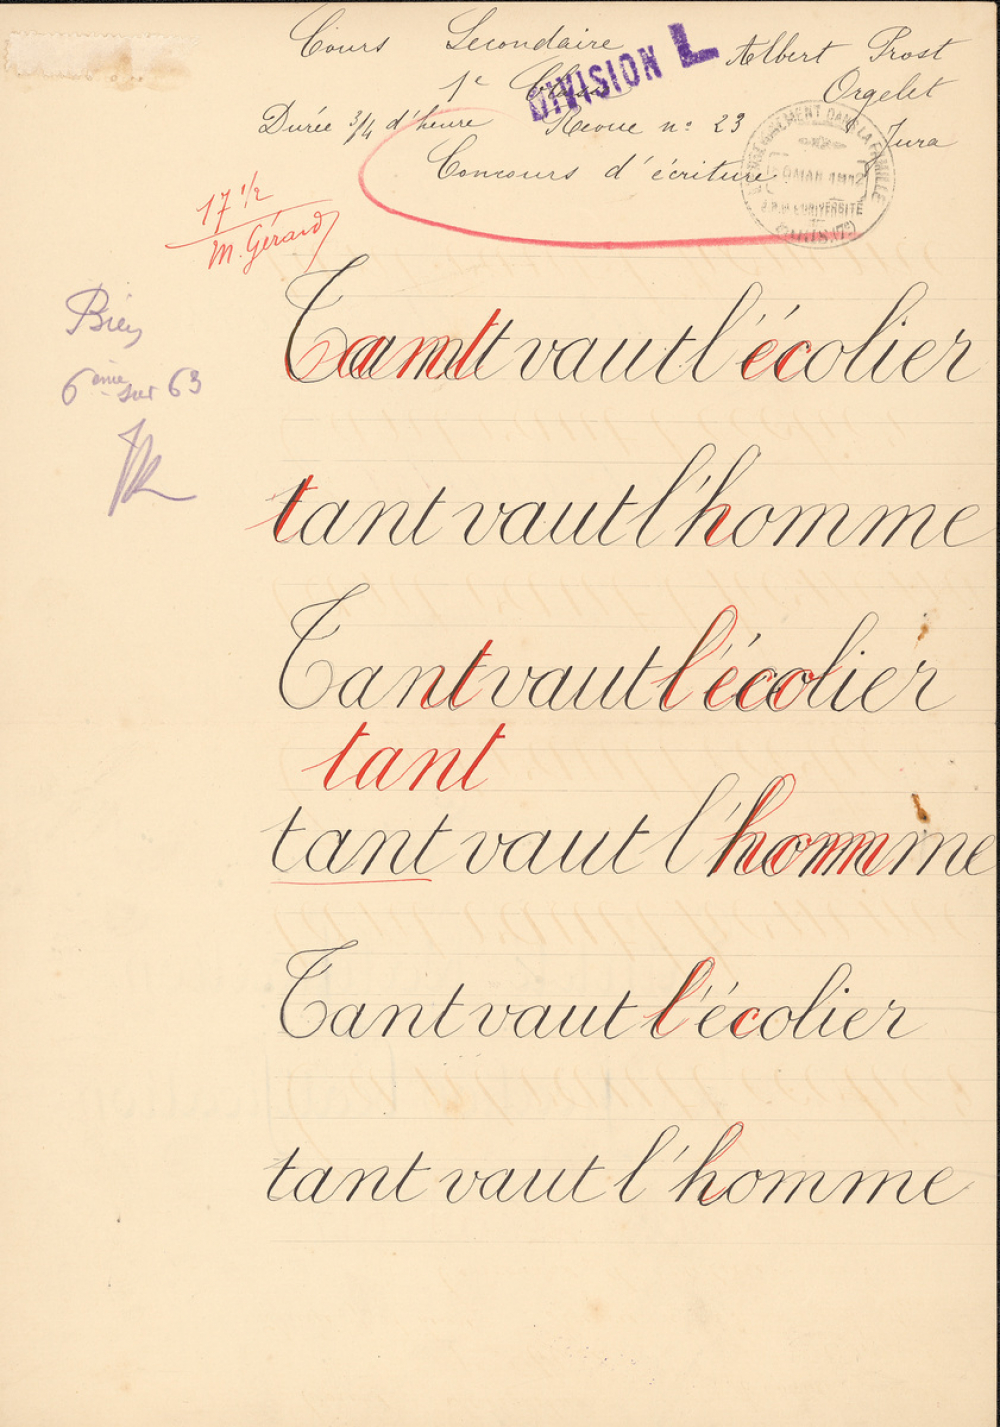 Cours Secondaire
Albert Prost
1e Classe
DIVISION L
Orgelet
Durée 3/4 d'heure Revue nº 23
Jura
Concours d'écriture
ENSEIGNEMENT DANS LA FAMILLE
MAR 1912
R. DE L'UNIVERSITÉ
PARIS (7e)
17 1/2
M. Gérard
Bien
6ème sur 63
Tant vaut l'écolier
tant vaut l'homme
Tant vaut l'écolier
tant
tant vaut l'homme
Tant vaut l'écolier
tant vaut l'homme